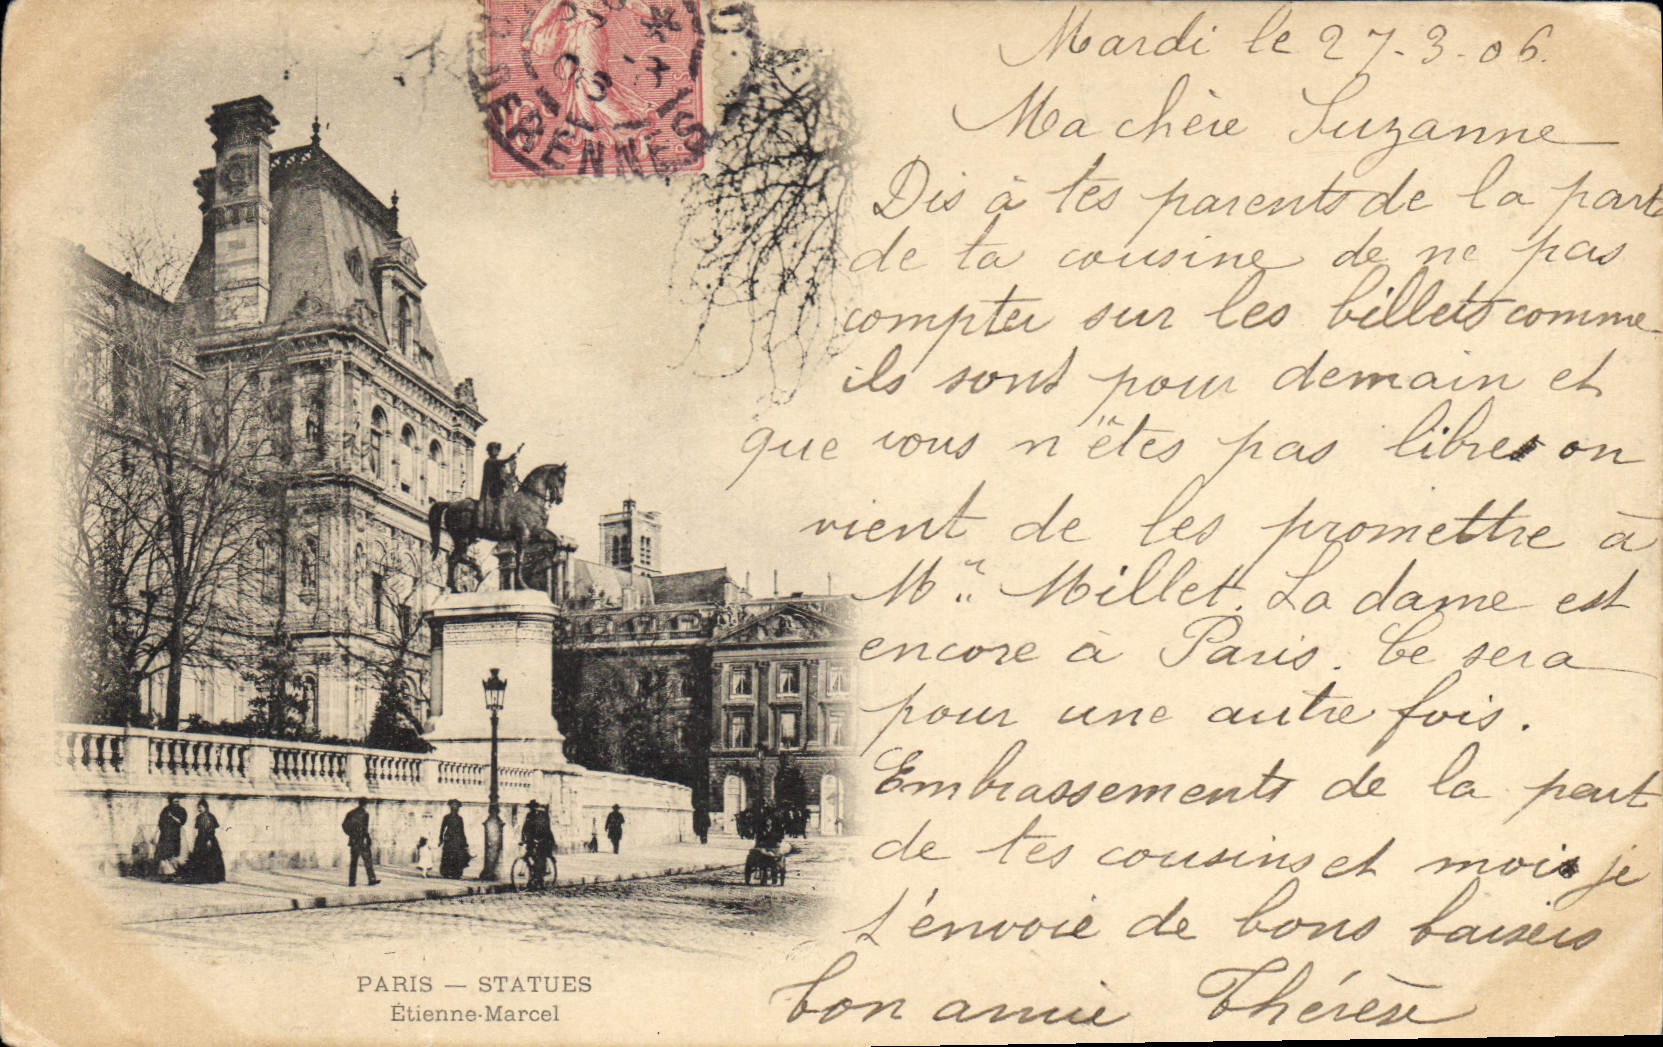 Mardi le 27-3-06.
Ma chère Suzanne
Dis à tes parents de la part
de ta cousine de ne pas
compter sur les billets comme
ils sont pour demain et
que vous n'êtes pas libres on
vient de les promettre à
M. Millet. La dame est
encore à Paris. Ce sera
pour une autre fois.
Embrassements de la part
de tes cousins et moi je
t'envoie de bons baisers
ton amie Thérèse
PARIS — STATUES
Étienne-Marcel